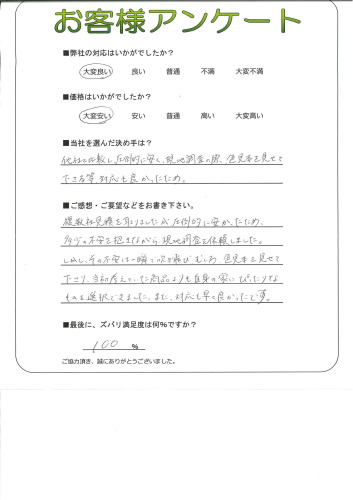 お客様アンケート
■弊社の対応はいかがでしたか？
大変良い 良い 普通 不満 大変不満
■価格はいかがでしたか？
大変安い 安い 普通 高い 大変高い
■当社を選んだ決め手は？
他社と比較し、圧倒的に安く、現地調査の際、色見本を見せて
下さる等、対応も良かったため。
■ご感想・ご要望などをお書き下さい。
複数社見積を取りましたが圧倒的に安かったため、
多少の不安を抱きながら、現地調査を依頼しました。
しかし、その不安は一瞬で吹き飛び、むしろ、色見本を見せて
下さり、当初考えていた商品よりも自身の家にぴったりな
ものを選択できました。また、対応も早く良かったです。
■最後に、ズバリ満足度は何％ですか？
100 ％
ご協力頂き、誠にありがとうございました。